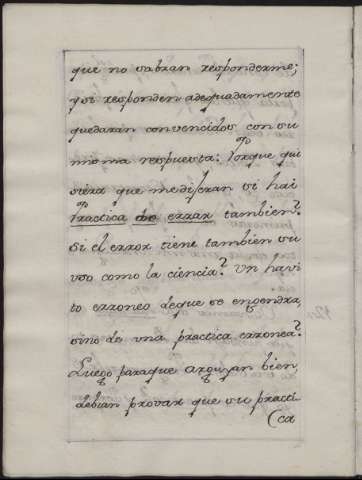 que no sabran responderme;
y si responden adequadamente
quedaràn convencidos con su
misma respuesta: Porque qui
siera que me dixeran si hai
Practica de errar tambien?
Si el error tiene tambien su
uso como la ciencia? Un havi
to erroneo de que se engendra,
sino de una practica erronea?
Luego paraque arguyan bien,
debian provar que su practi
(ca